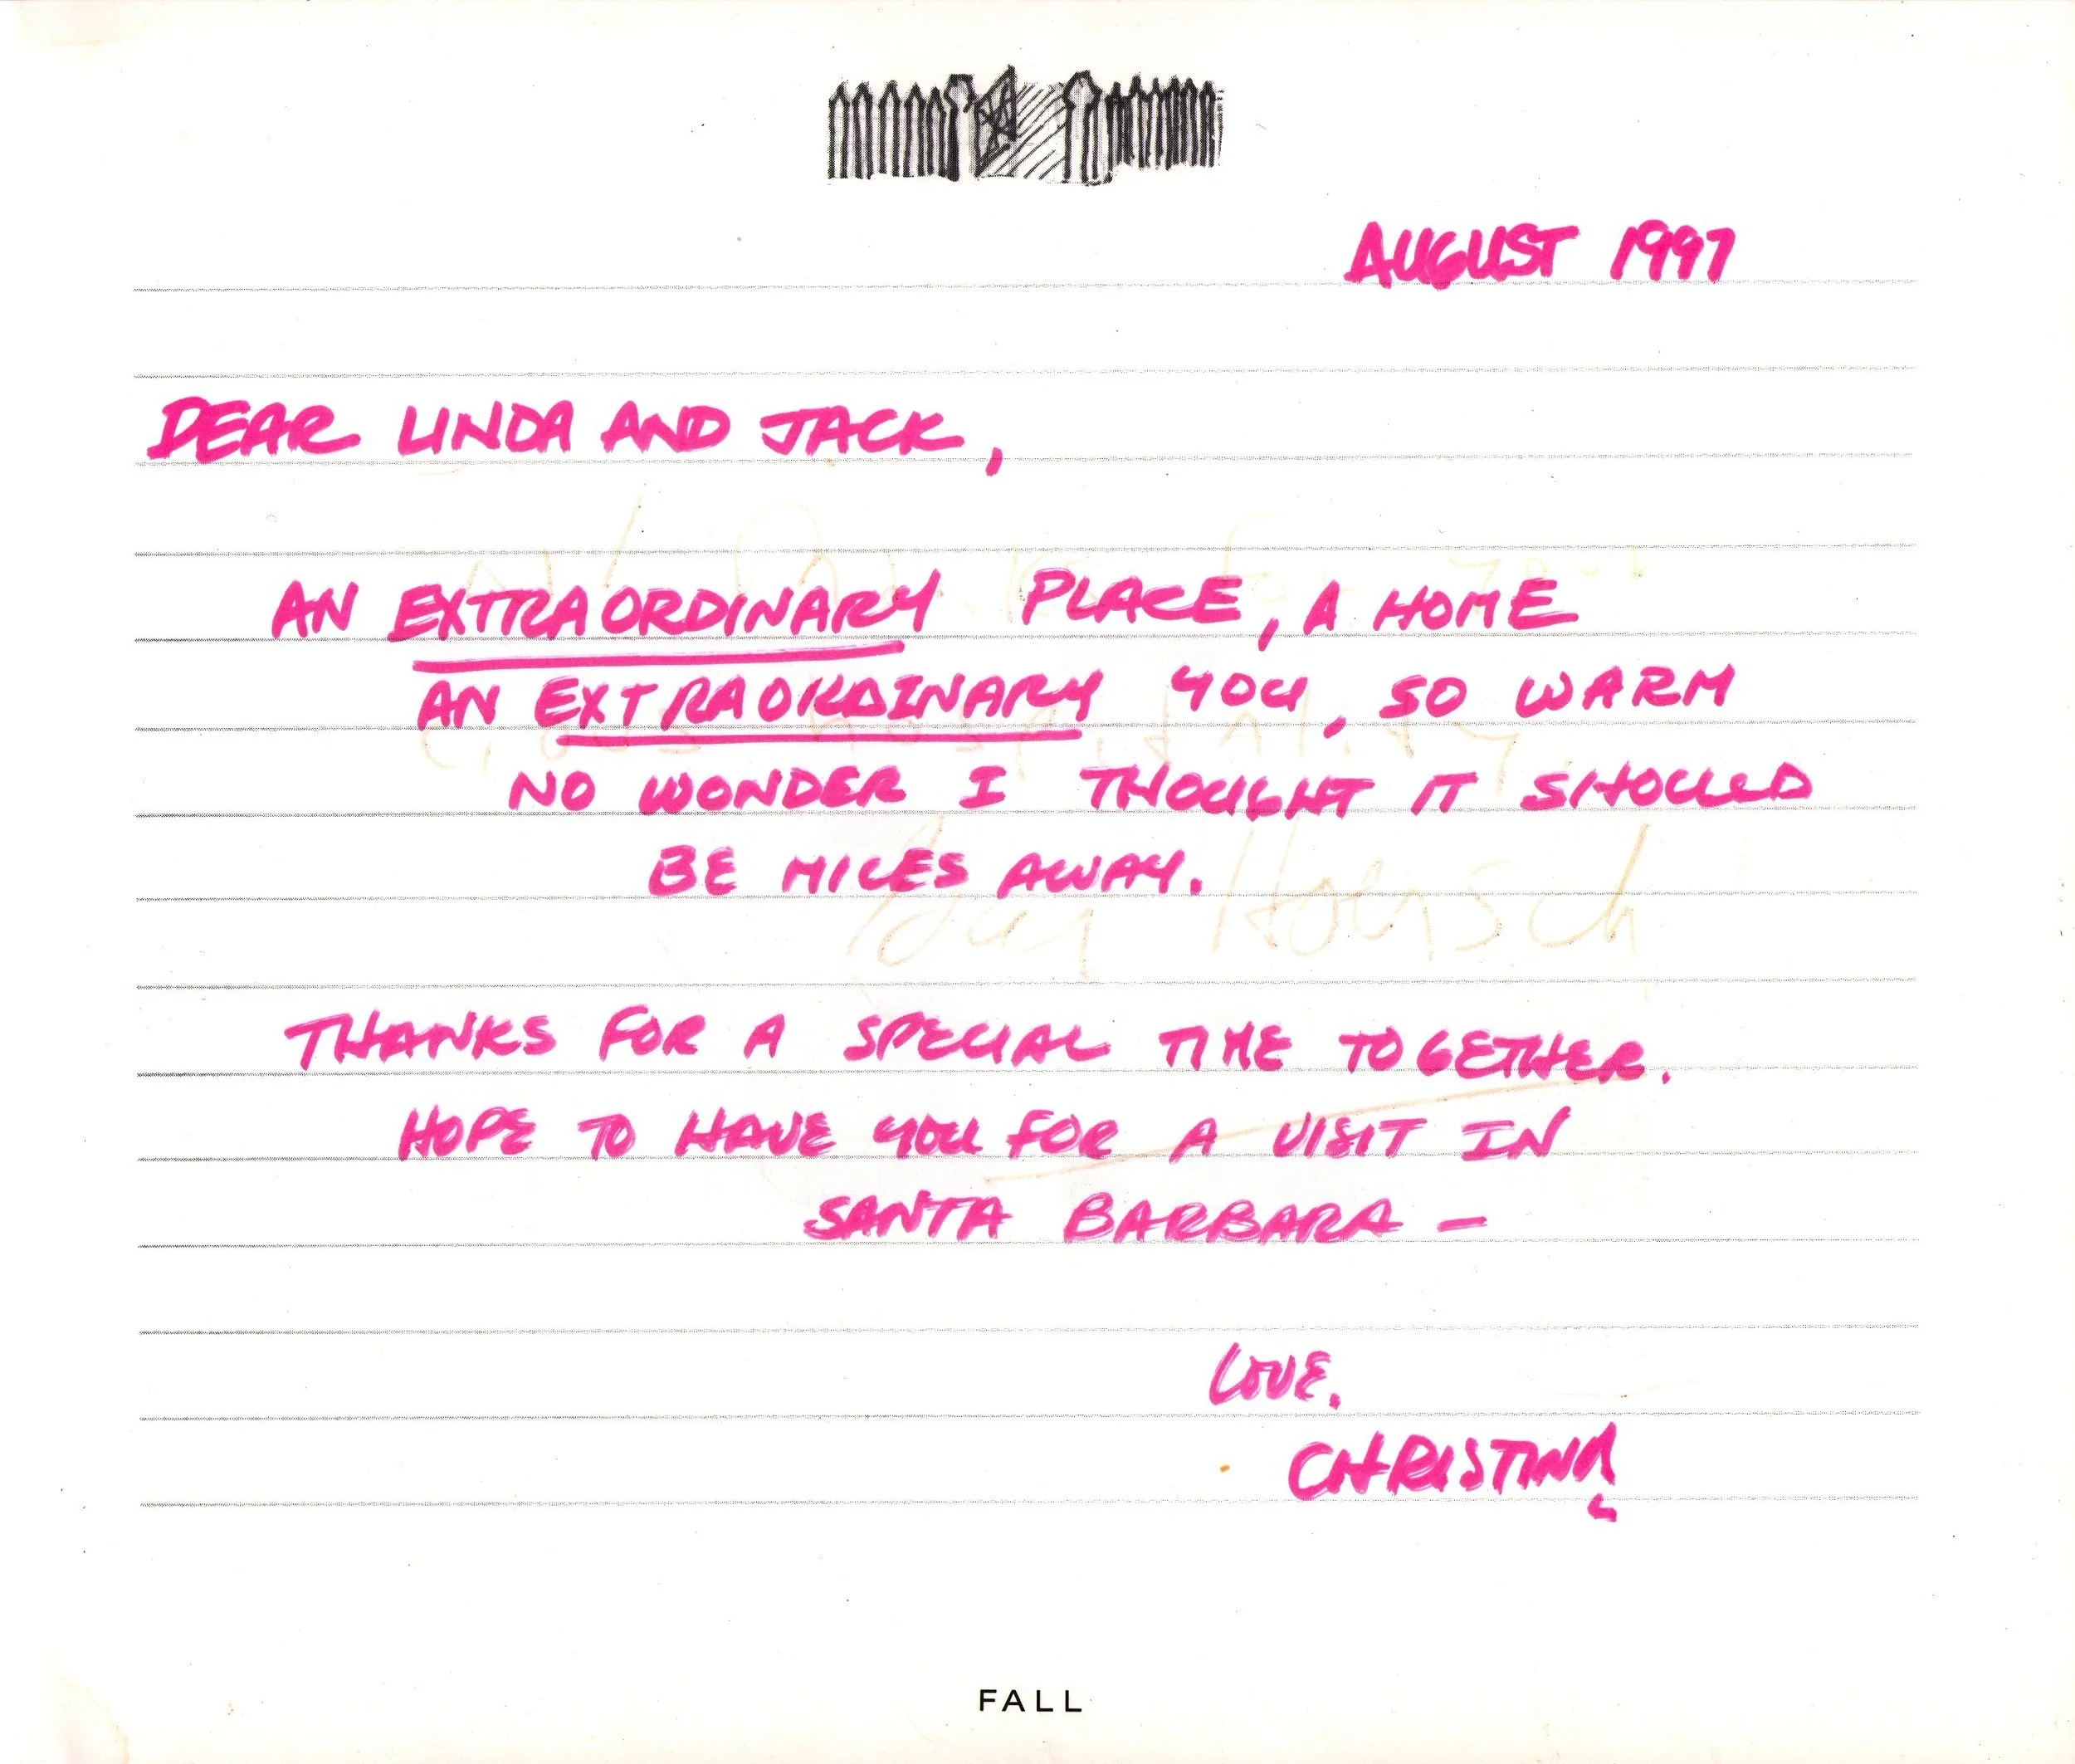 AUGUST 1997
DEAR LINDA AND JACK,
AN EXTRAORDINARY PLACE, A HOME
AN EXTRAORDINARY YOU, SO WARM
NO WONDER I THOUGHT IT SHOULD
BE MILES AWAY.
THANKS FOR A SPECIAL TIME TOGETHER.
HOPE TO HAVE YOU FOR A VISIT IN
SANTA BARBARA –
LOVE,
CHRISTINA
FALL